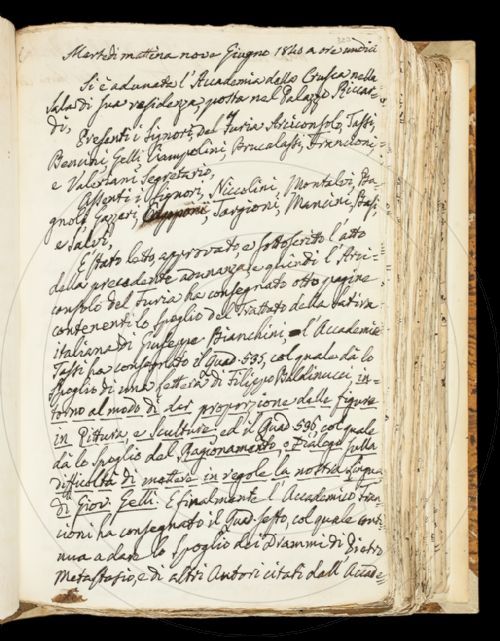 Martedì mattina nove Giugno 1840 a ore undici
Si è adunata l'Accademia della Crusca nella
Sala di sua residenza, posta nel Palazzo Riccar-
di,
Presenti i Signori, Del Furia Arciconsolo, Tassi,
Bencini, Gelli, Rampolini, Brucalassi, Francioni,
e Valeriani Segretario,
Assenti i Signori, Niccolini, Montalvi, Ba-
gnoli, Gazzeri, Capponi, Targioni, Mancini,
e Salvi,
È stato letto, approvato e sottoscritto l'atto
della precedente adunanza, e quindi l'Arci-
consolo Del Furia ha consegnato otto pagine
contenenti lo spoglio del Trattato della satira
italiana di Giuseppe Bianchini, l'Accademico
Tassi ha consegnato il Quad. 535, col quale dà lo
spoglio di una lettera di Filippo Baldinucci, in-
torno al modo di dar proporzione alle figure
in Pittura, e Scultura, ed il Quad. 536, col quale
dà lo spoglio del Ragionamento, o Dialogo sulla
difficoltà di mettere in regole la nostra Lingua
di Giov. Gelli. E finalmente l'Accademico Fran-
cioni ha consegnato il Quad. sesto, col quale conti-
nua a dare lo spoglio dei Drammi di Pietro
Metastasio, e di altri Autori citati dall'Accade-